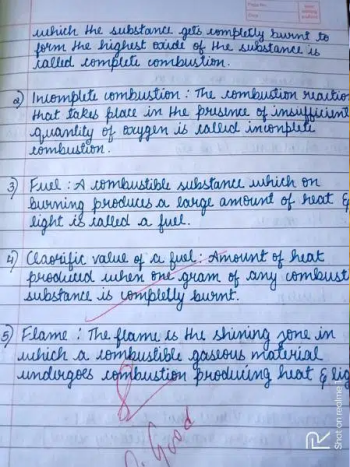 which the substance gets completly burnt to
form the highest oxide of the substance is
called complete combustion.
2) Incomplete combustion : The combustion reaction
that takes place in the presence of insufficient
quantity of oxygen is called incomplete
combustion.
3) Fuel : A combustible substance which on
burning produces a large amount of heat &
light is called a fuel.
4) Claorific value of a fuel : Amount of heat
produced when one gram of any combust
substance is completly burnt.
5) Flame : The flame is the shining zone in
which a combustible gaseous material
undergoes combustion producing heat & lig
Good
Shot on realme